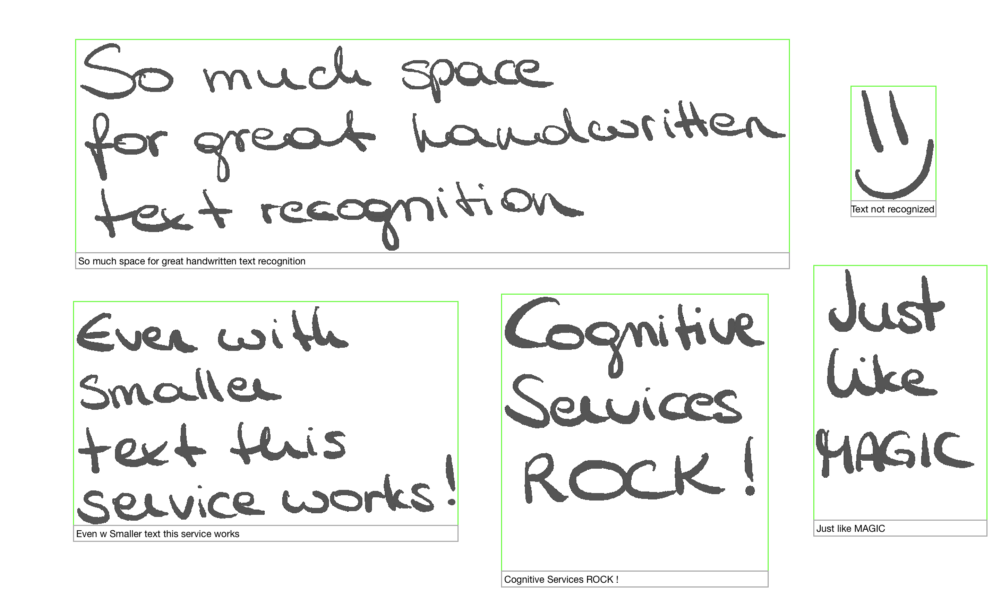 So much space
for great handwritten
text recognition
So much space for great handwritten text recognition
Text not recognized
Even with
smaller
text this
service works!
Even w Smaller text this service works
Cognitive
Services
ROCK!
Cognitive Services ROCK !
Just
like
MAGIC
Just like MAGIC